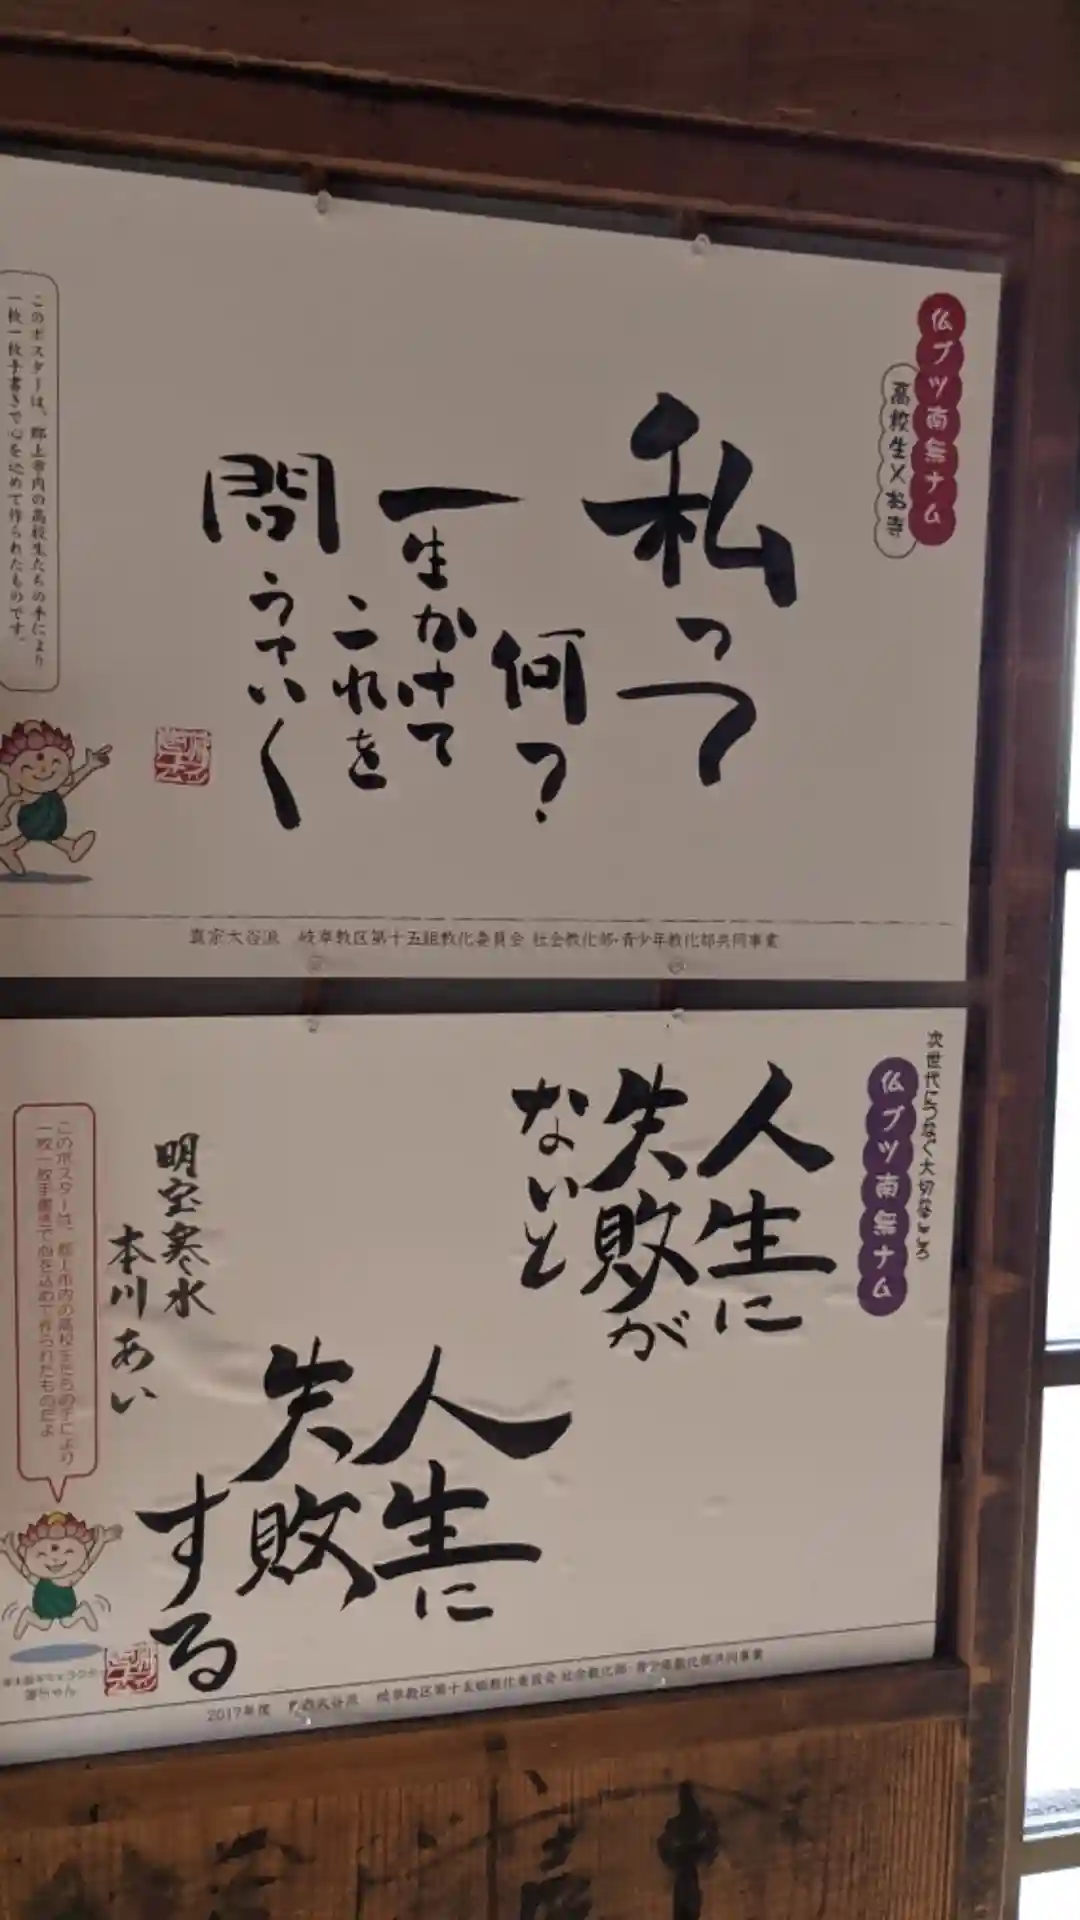 仏ブツ南無ナム
高校生×お寺
私って
何って?
一生かけて
これを
問うていく
このポスターは、郡上市内の高校生たちの手により
一枚一枚手書きで心を込めて作られたものです。
真宗大谷派 岐阜教区第十五組教化委員会 社会教化部・青少年教化部共同事業
次世代につなぐ大切なこころ
仏ブツ南無ナム
人生に
失敗が
ないと
人生に
失敗
する
明宝寒水
本川あい
このポスターは、郡上市内の高校生たちの手により
一枚一枚手書きで心を込めて作られたものだよ
蓮ちゃん
2017年度 真宗大谷派 岐阜教区第十五組教化委員会 社会教化部・青少年教化部共同事業